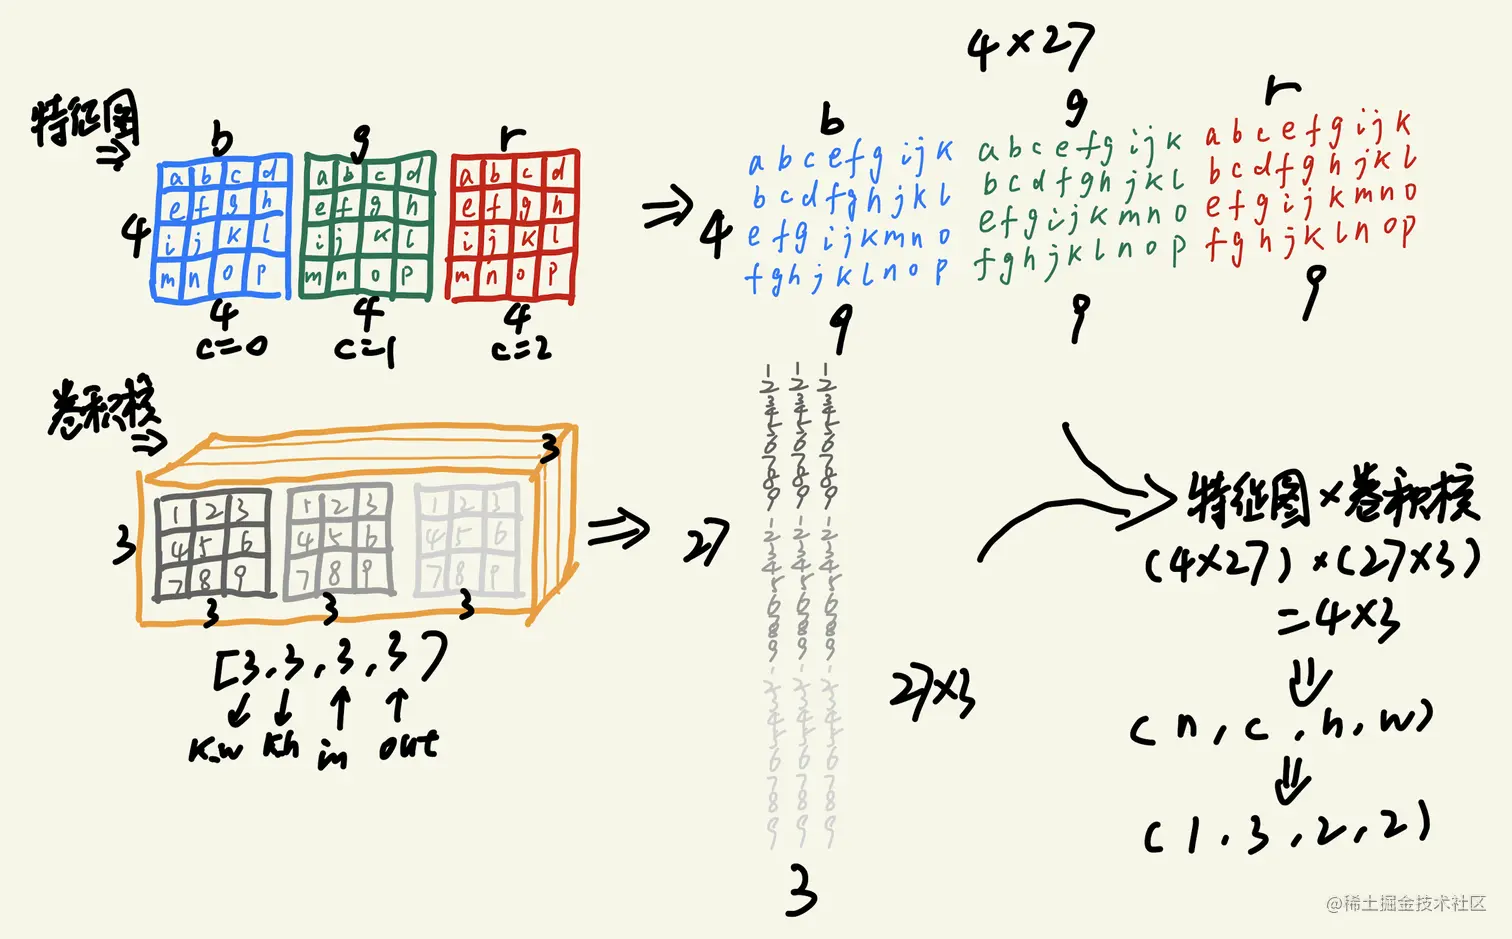 特征图
⇒
b g r
a b c d
e f g h
i j k l
m n o p
a b c d
e f g h
i j k l
m n o p
a b c d
e f g h
i j k l
m n o p
4
4 4 4
c=0 c=1 c=2
⇒
4×27
b
a b c e f g i j k
b c d f g h j k l
e f g i j k m n o
f g h j k l n o p
4
9
g
a b c e f g i j k
b c d f g h j k l
e f g i j k m n o
f g h j k l n o p
9
r
a b c e f g i j k
b c d f g h j k l
e f g i j k m n o
f g h j k l n o p
9
卷积核
⇒
3
1 2 3
4 5 6
7 8 9
1 2 3
4 5 6
7 8 9
1 2 3
4 5 6
7 8 9
3
3 3 3
[3,3,3,3)
↓ ↓ ↑ ↑
K_w Kh in out
⇒
27
1 1 1
2 2 2
3 3 3
4 4 4
5 5 5
6 6 6
7 7 7
8 8 8
9 9 9
1 1 1
2 2 2
3 3 3
4 4 4
5 5 5
6 6 6
7 7 7
8 8 8
9 9 9
1 1 1
2 2 2
3 3 3
4 4 4
5 5 5
6 6 6
7 7 7
8 8 8
9 9 9
3
27×3
特征图×卷积核
(4×27)×(27×3)
=4×3
⇓
(n,c,h,w)
⇓
(1,3,2,2)
@稀土掘金技术社区